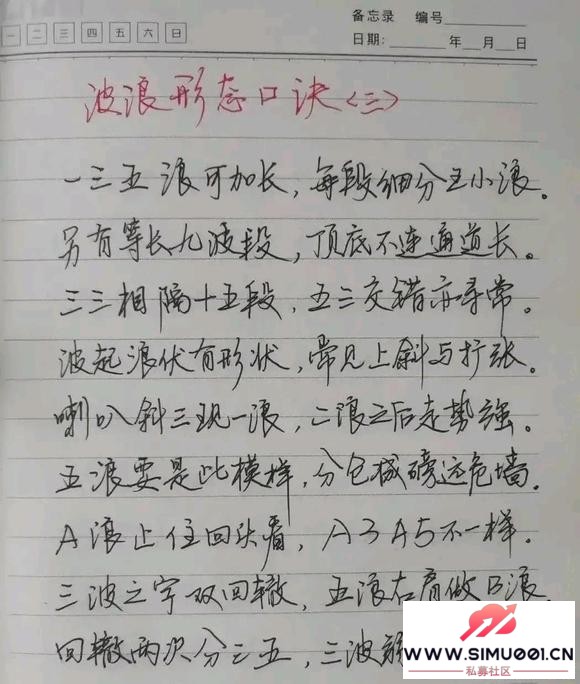 一 二 三 四 五 六 日
备忘录 编号
日期: 年 月 日
波浪形态口诀<三>
一三五浪可加长，每段细分五小浪。
另有等长九波段，顶底不连通道长。
三三相隔十五段，五三交错亦寻常。
波起浪伏有形状，常见上斜与扩张。
喇叭斜三现一浪，二浪之后走势强。
五浪要是此模样，分仓减磅远危墙。
A浪止住回头看，A3A5不一样。
三波之字双回辙，五浪右肩做B浪
回辙两次分三五，三波
WWW.SIMU001.CN
私募社区